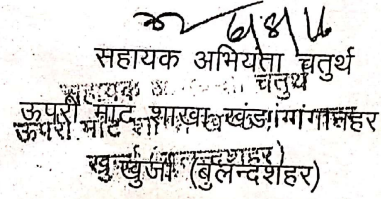 6/8/16
सहायक अभियंता चतुर्थ
ऊपरी माट शाखा खंड गंगानहर
खुर्जा (बुलन्दशहर)